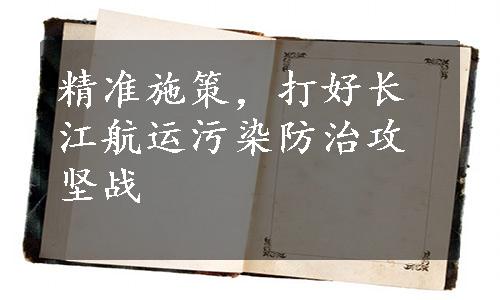 精准施策，打好长
江航运污染防治攻
坚战